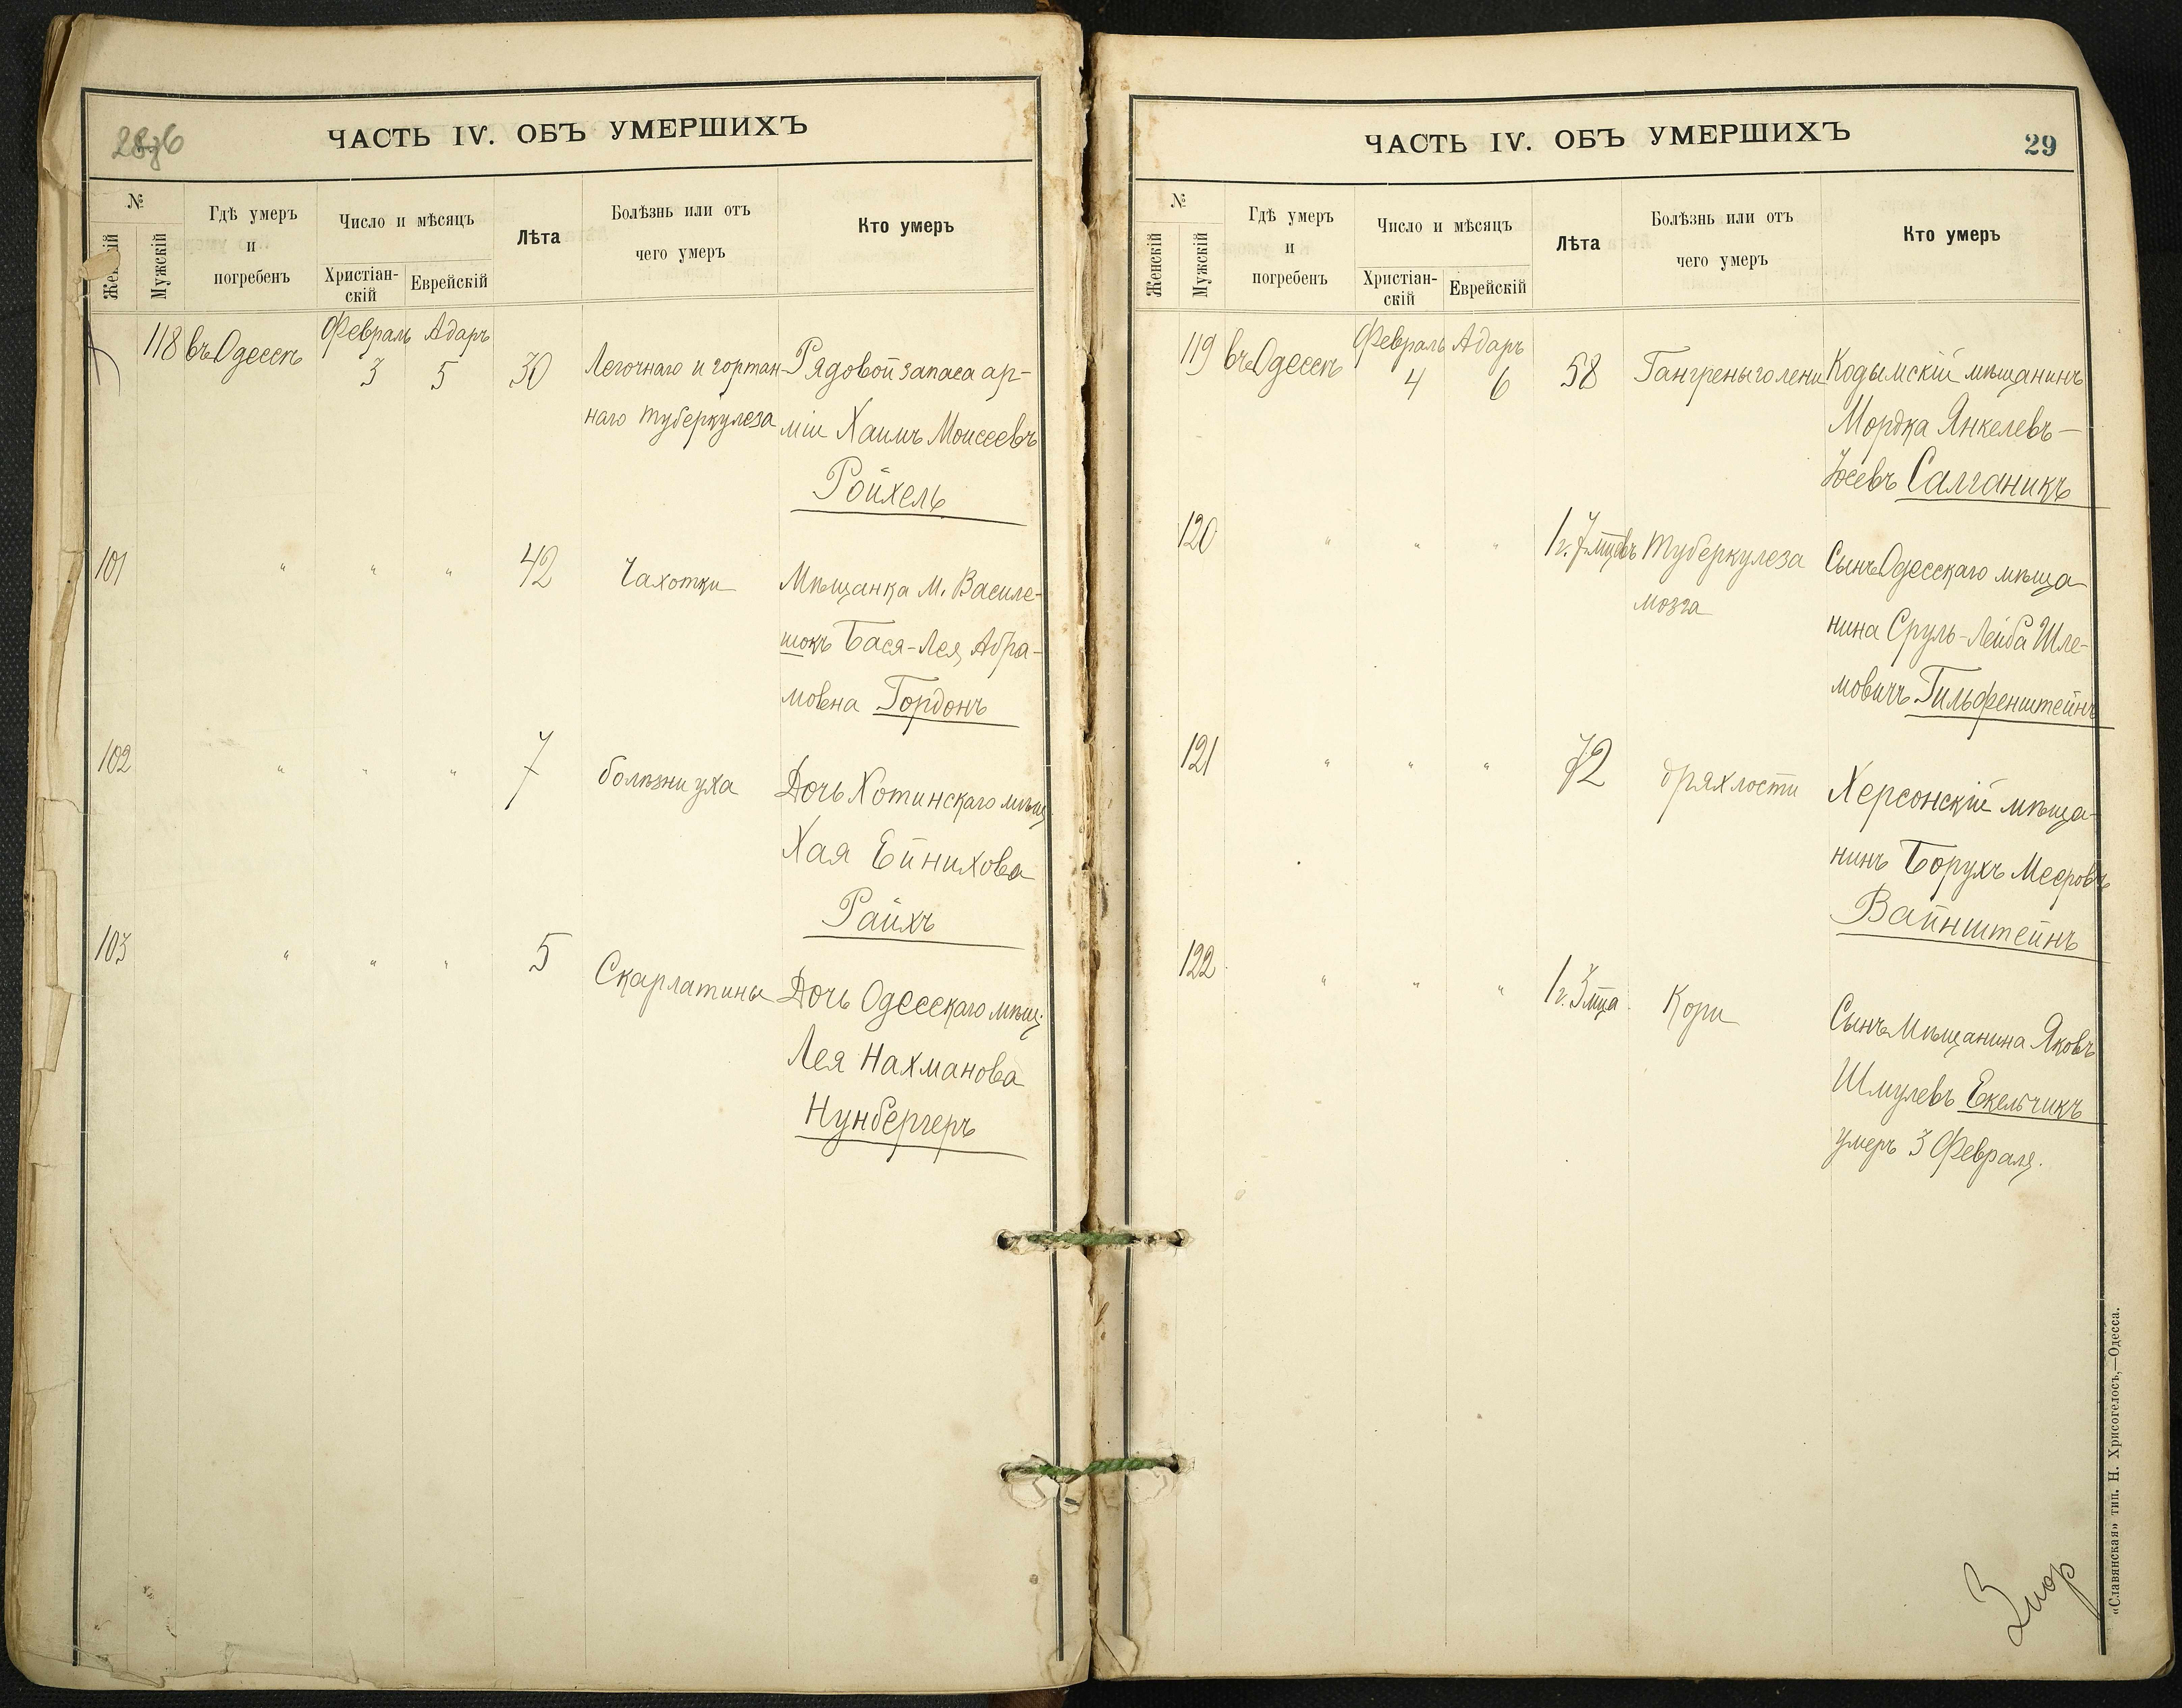 ЧАСТЬ IV. ОБЪ УМЕРШИХЪ
№
Мужскій
Гдѣ умеръ
и
погребенъ
Число и мѣсяцъ
Христіан-
скій
Еврейскій
Лѣта
Болѣзнь или отъ
чего умеръ
Кто умеръ
118 въ Одессѣ Февраль 3 Адаръ 5 30 Легочнаго и гортан- Рядовой запаса ар-
наго туберкулеза міи Хаимъ Моисеевъ
Ройхель
101 " " " 42 Чахотки Мѣщанка м. Василе-
шокъ Бася-Лея Абра-
мовна Гордонъ
102 " " " 7 болѣзни уха Дочь Хотинскаго мѣщ
Хая Ейнихова
Райхъ
103 " " " 5 Скарлатины Дочь Одесскаго мѣщ.
Лея Нахманова
Нунбергеръ
ЧАСТЬ IV. ОБЪ УМЕРШИХЪ
29
№
Женскій
Мужскій
Гдѣ умеръ
и
погребенъ
Число и мѣсяцъ
Христіан-
скій
Еврейскій
Лѣта
Болѣзнь или отъ
чего умеръ
Кто умеръ
119 въ Одессѣ Февраль 4 Адаръ 6 58 Гангрены голени Кодымскій мѣщанинъ
Мордка Янкелевъ-
Іосевъ Салганикъ
120 " " " 1 г. 7 мцевъ Туберкулеза Сынъ Одесскаго мѣща
мозга нина Сруль-Лейба Шле-
мовичъ Гильфенштейнъ
121 " " " 72 дряхлости Херсонскій мѣща-
нинъ Борухъ Мееровъ
Вайнштейнъ
122 " " " 1 г. 3 мца Кори Сынъ Мѣщанина Яковъ
Шмулевъ Екельчикъ
умеръ 3 Февраля.
«Славянская» тип. Н. Хрисогелосъ,—Одесса.